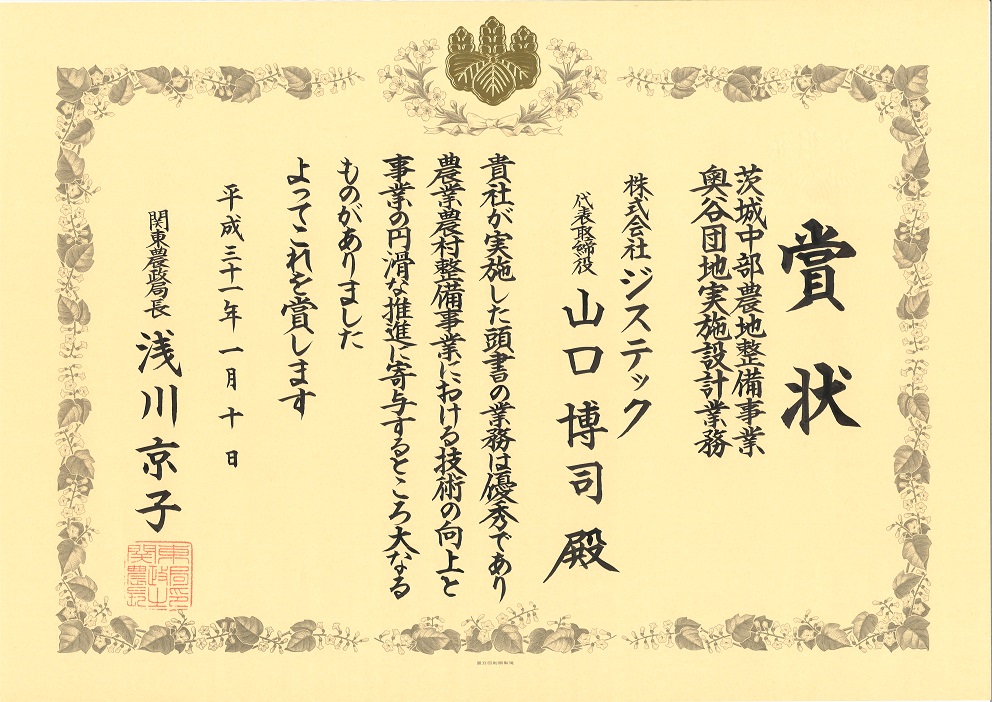 賞状
茨城中部農地整備事業
奥谷団地実施設計業務
株式会社ジステック
代表取締役 山口博司殿
貴社が実施した頭書の業務は優秀であり
農業農村整備事業における技術の向上と
事業の円滑な推進に寄与するところ大なる
ものがありました
よってこれを賞します
平成三十一年一月十日
関東農政局長 浅川京子